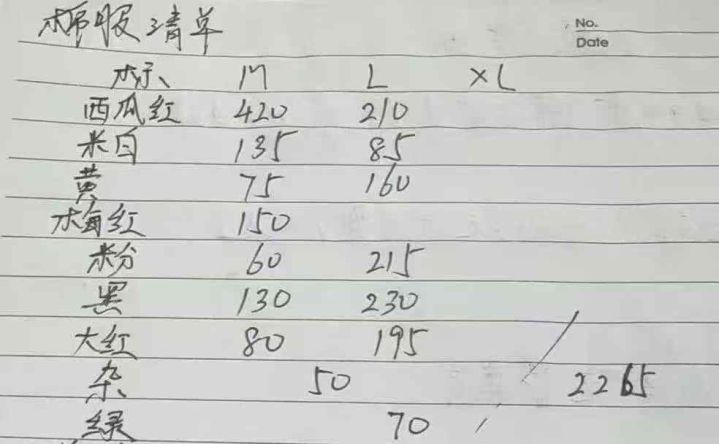 服清单
No.
Date
标 M L XL
西瓜红 420 210
米白 135 85
黄 75 160
梅红 150
粉 60 215
黑 130 230
大红 80 195
杂 50 2265
绿 70